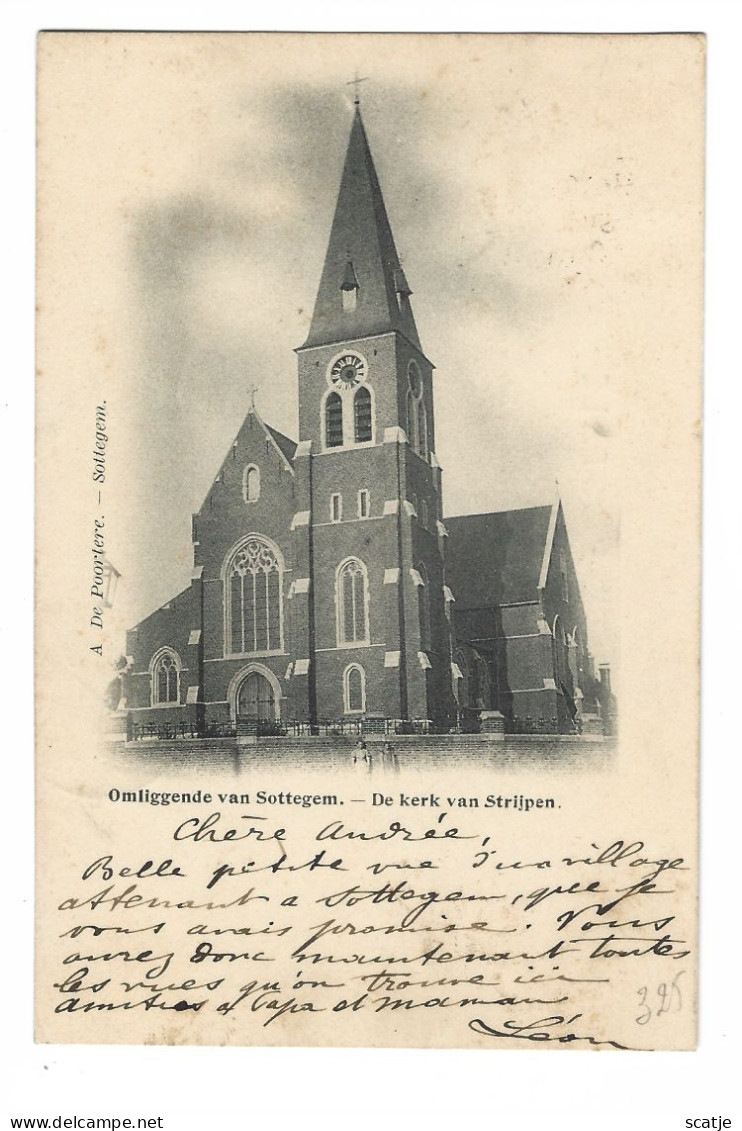 A De Poortere. — Sottegem.
Omliggende van Sottegem. — De kerk van Strijpen.
Chère Andrée,
Belle petite vue d'un village
attenant a Sottegem, que je
vous avais promise. Vous
aurez donc maintenant toutes
les vues qu'on trouve ici
Amitiés a Papa et maman
Léon
325
scatje